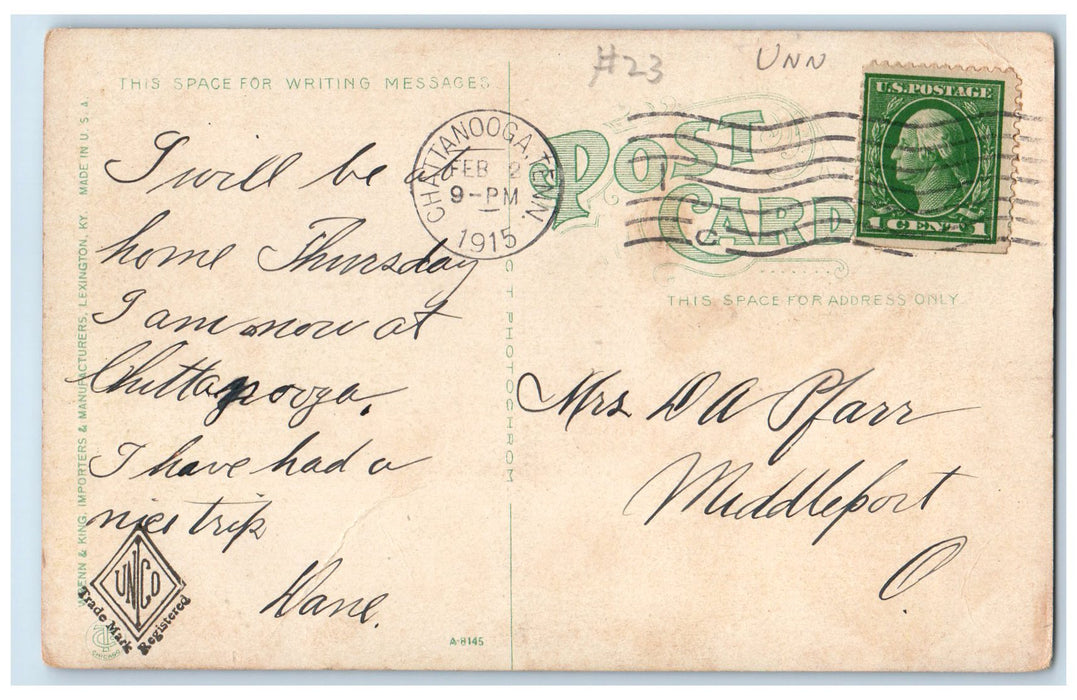 THIS SPACE FOR WRITING MESSAGES
I will be at
home Thursday
I am now at
Chuttanooga.
I have had a
nice trip
Dane.
CHATTANOOGA, TENN.
FEB 2
9-PM
1915
#23
UNN
POST
CARD
U.S. POSTAGE
1 CENT 1
THIS SPACE FOR ADDRESS ONLY
Mrs D A Pfarr
Middleport
O.
& KING, IMPORTERS & MANUFACTURERS, LEXINGTON, KY. MADE IN U.S.A.
CT PHOTOCHROM
UNCO
Trade Mark
Registered
CHICAGO
A-8145